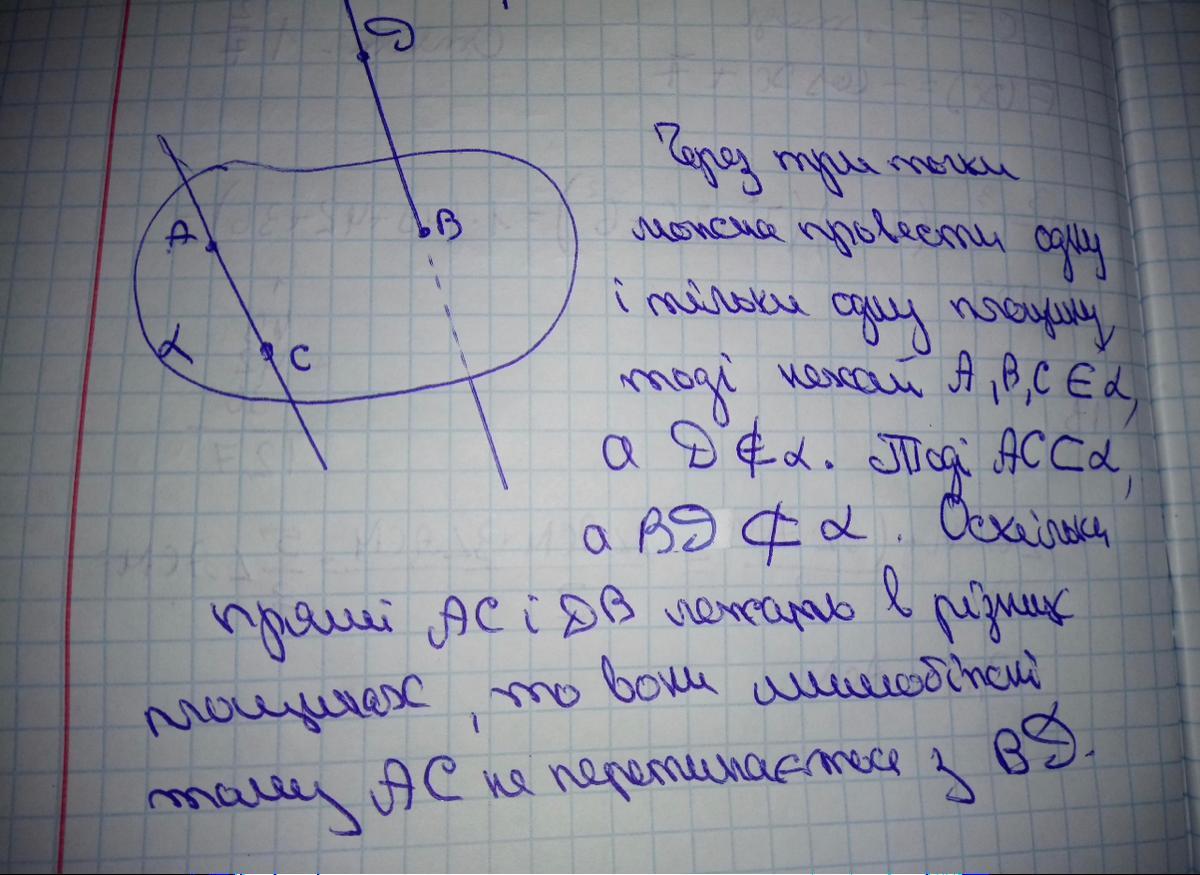 D
A
B
C
α
Через три точки
можна провести одну
і тільки одну площину,
тоді нехай A, B, C ∈ α,
а D ∉ α. Тоді AC ⊂ α,
а BD ⊄ α. Оскільки
прямі AC і DB лежать в різних
площинах, то вони мимобіжні
тому AC не перетинається з BD.